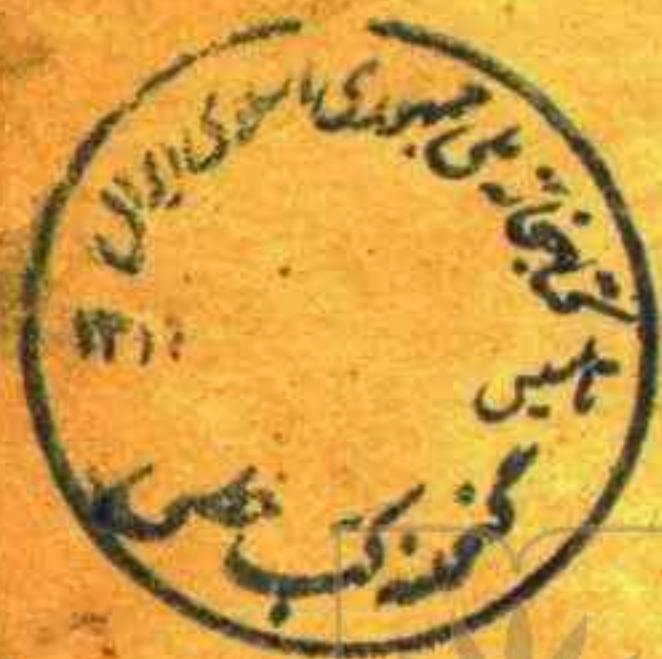 کتابخانه ملی جمهوری اسلامی ایران
تاسیس
گنجینه کتب